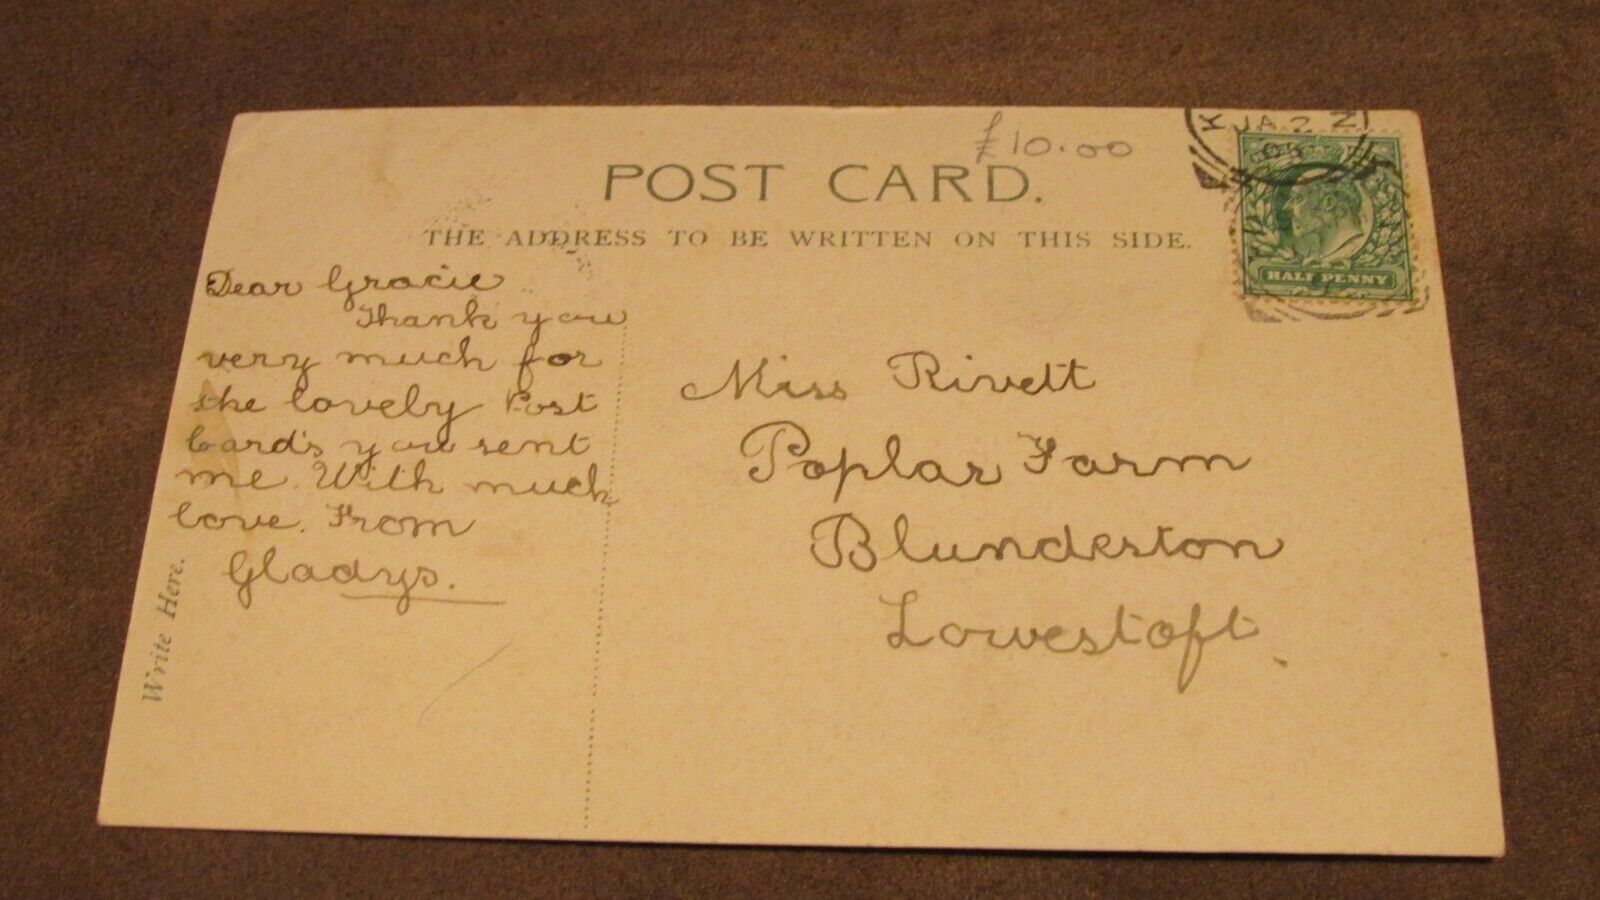 £10.00
POST CARD.
THE ADDRESS TO BE WRITTEN ON THIS SIDE.
JA 2
HALF PENNY
Dear Gracie
Thank you
very much for
the lovely Post
Card's you sent
me. With much
love. From
Gladys.
Write Here.
Miss Rivett
Poplar Farm
Blundeston
Lowestoft